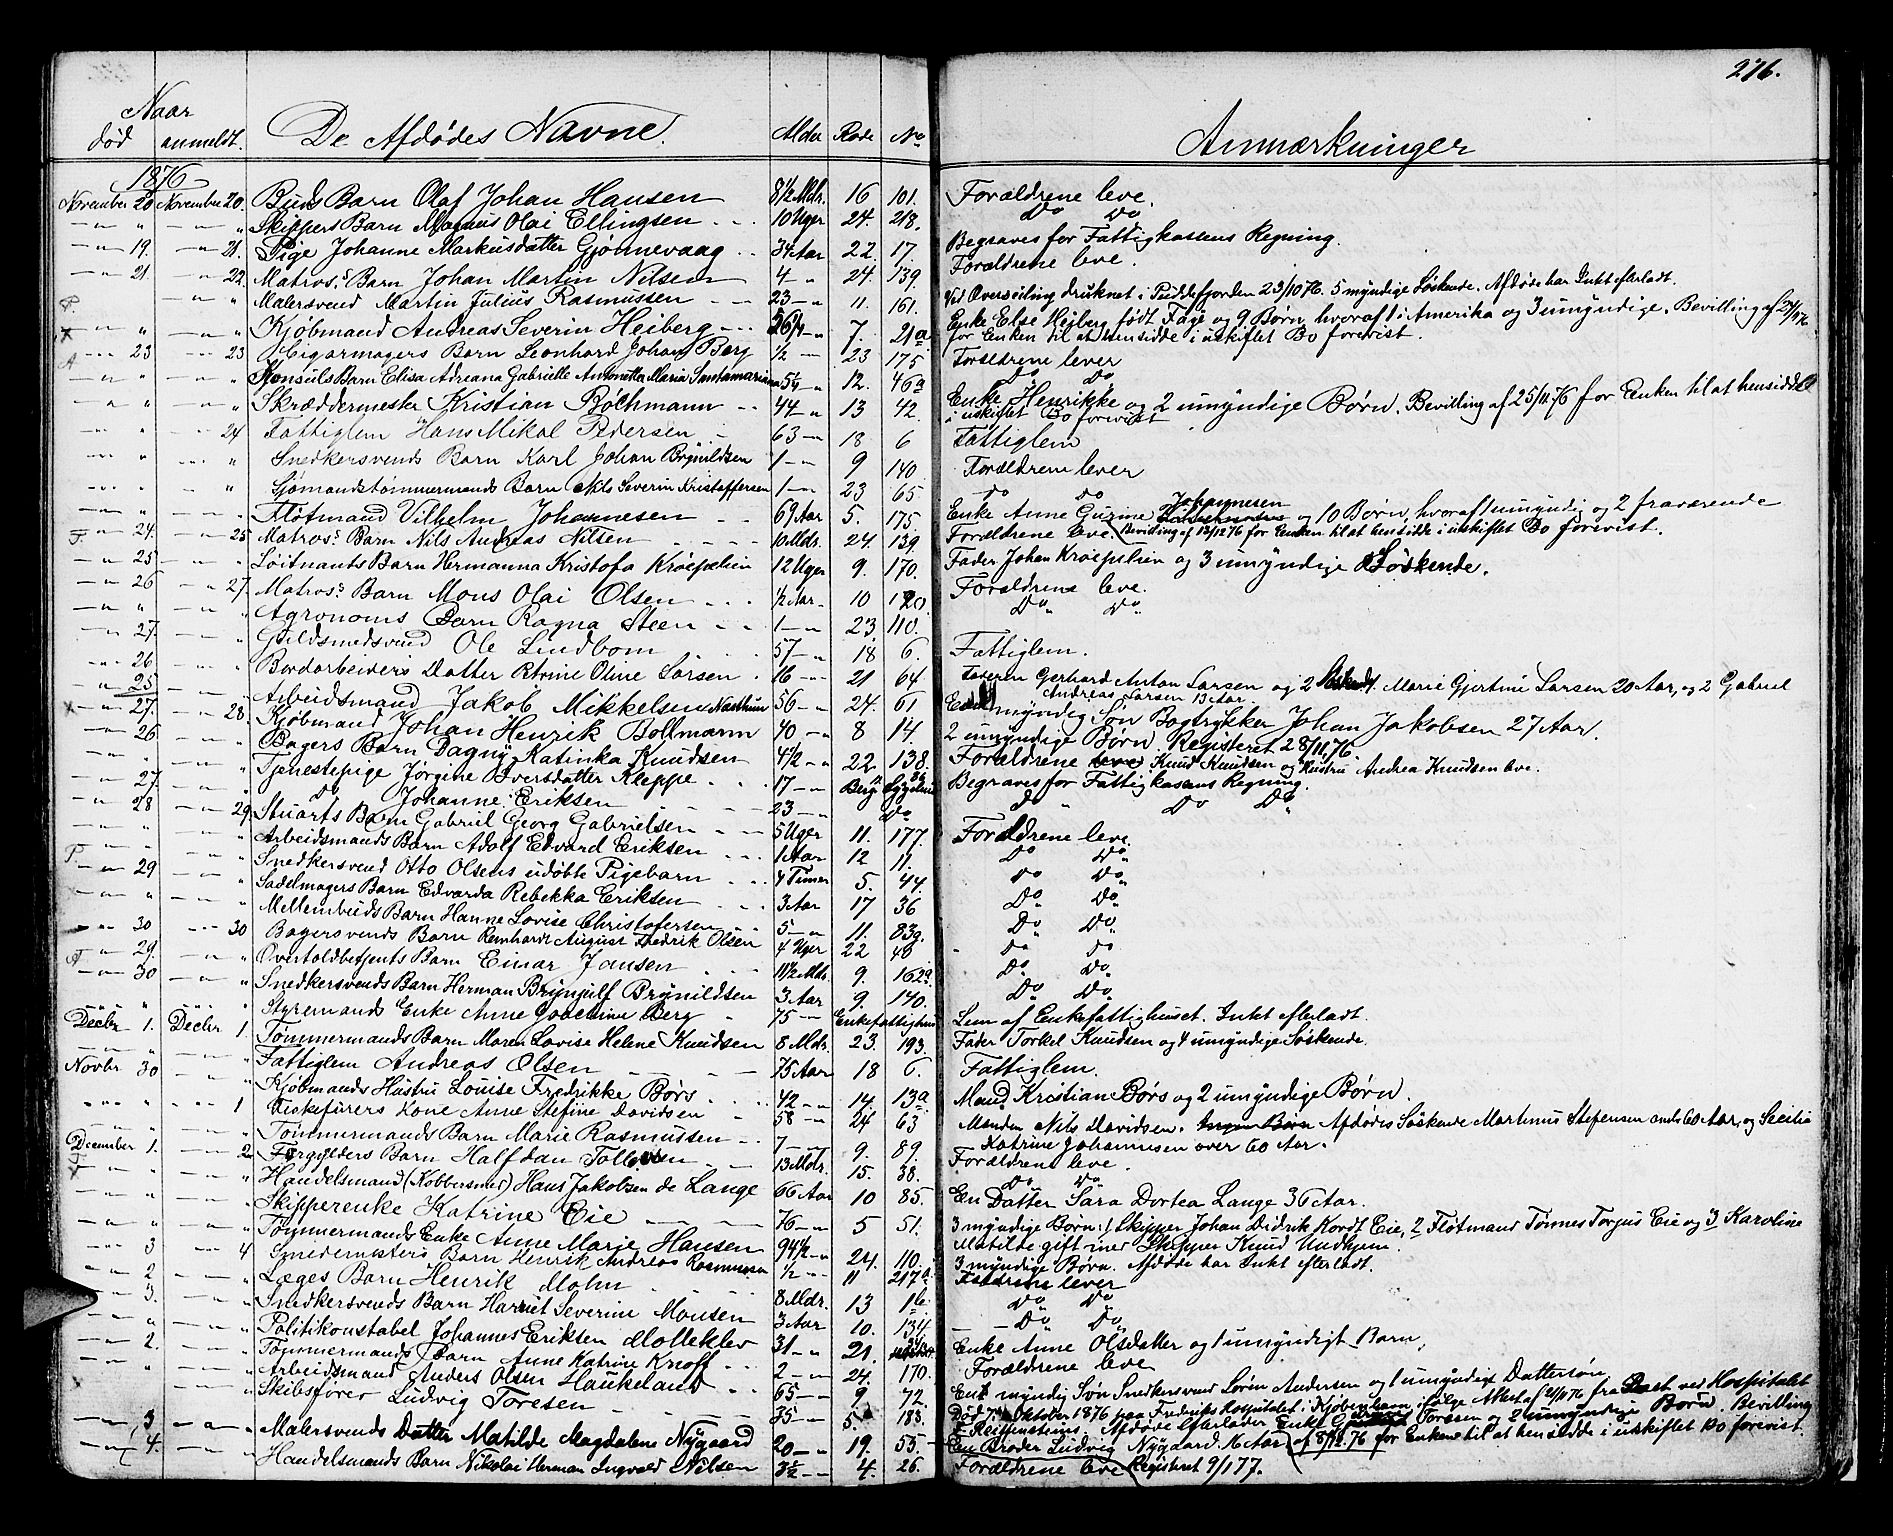 276.
Naar
død anmeldt. De Afdødes Navne. Alder Rode No Anmærkninger
1876
November 20 November 20. Buds Barn Olaf Johan Hansen 8½ Mdr. 16 101. Forældrene leve.
" " Skippers Barn Magnus Olai Ellingsen 10 Uger 24. 218. Do Do
19. 21. Pige Johanne Markusdatter Gjønnevaag 34 Aar 22. 17. Begraves for Fattigkassens Regning.
21. 22. Matros's Barn Johan Martin Nilsen 4 " 24. 139. Forældrene leve.
P. " Malersvend Martin Julius Rasmussen 23 " 11. 161. Ved Overseiling druknet i Puddefjorden 23/10 76. 5 myndige Søskende. Afdøde har Intet efterladt.
" " Kjøbmand Andreas Severin Heiberg 7. 21a Enke Else Heiberg født Faye og 9 Børn, hvoraf 1 i Amerika og 3 umyndige. Bevilling af
for Enken til at hensidde i uskiftet Bo forevist.
A 23 23 Cigarmagers Barn Leonhard Johan Berg ½ 23 175 Forældrene lever
" " Konsuls Barn Elisa Adreana Gabrielle Antonetta Maria Santamariana 5¼ 12. 46a Do Do
" " Skræddermester Kristian Bøchmann 44 13 42. Enke Henrikke og 2 umyndige Børn. Bevilling af 25/11.76 for Enken til at hensidde
i uskiftet Bo forevist
" 24 Fattiglem Hans Mikal Pedersen 63 18 6 Fattiglem
" " Snedkersvends Barn Karl Johan Brynildsen 1 9 140 Forældrene lever
" " Sjømandstømmermands Barn Nils Severin Kristoffersen 1 23 65 do do
Fløtmand Vilhelm Johannesen 69 Aar 5. 175 Enke Anne Gurine Johannesen og 10 Børn, hvoraf 1 umyndig og 2 fraværende
F. 24. 25 Matros's Barn Nils Andreas Nilsen 10 Mdr. 24. 139. Forældrene leve. (Bevilling af 13/12 76 for Enken til at hensidde i uskiftet Bo forevist.
25 " Løitnants Barn Hermanna Kristofa Kroepelien 12 Uger 9. 170. Fader Johan Kroepelien og 3 umyndige Søskende.
26 27. Matros's Barn Mons Olai Olsen ½ Aar 10 120. Forældrene leve.
" " Agronoms Barn Ragna Steen 1 23. 110. Do Do
27. " Guldsmedsvend Ole Lindbom 57 18 6. Fattiglem.
26 " Bordarbeiders Datter Petrine Oline Larsen 16 21 64. Faderen Gerhard Anton Larsen og 2 Søskend. 1. Marie Gjertine Larsen 20 Aar, og 2 Gabriel
Andreas Larsen 13 Aar.
25 Arbeidsmand Jakob Mikkelsen Nasthun 56 24. 61 En myndig Søn Bogtrykker Johan Jakobsen 27 Aar.
27. 28. Kjøbmand Johan Henrik Bollmann 40 8 14 2 umyndige Børn. Registeret 28/11.76
26 " Bagers Barn Dagny Katinka Knudsen 4½ 22. 138. Forældrene Knud Knudsen og Hustru Andrea Knudsen leve.
" " Tjenestepige Jørgine Iversdatter Kleppe 17 Begraves for Fattigkassens Regning.
27. " do Johanne Eriksen 23 Do Do Do Do
28 29. Stuarts Barn Gabriel Georg Gabrielsen 5 Uger 11. 177. Forældrene leve.
" " Arbeidsmands Barn Adolf Edvard Eriksen 1 Aar 12 11. Do Do
P. " " Snedkersvend Otto Olsens udøbte Pigebarn 4 Timer 5. 44. Do Do
29 " Sadelmagers Barn Edvarda Rebekka Eriksen 3 Aar 17 36 Do Do
" " Mellembuds Barn Hanne Lovise Christofersen 5 11. 83g. Do Do
30 30 Bagersvends Barn Reinhardt August Fredrik Olsen 4 Uger 22 40 do do
A 29. " Overtoldbetjents Barn Einar Jansen 11½ Mdr. 9. 162a Do Do
30 " Snedkersvends Barn Herman Brynjulf Brynildsen 3 Aar 9. 140. Do Do
" " Styremands Enke Anne Joachine Berg 75 Enkefattighuset Lem af Enkefattighuset. Intet efterladt.
Decbr. 1. Decbr 1. Tømmermands Barn Maren Lovise Helene Knudsen 8 Mdr. 23. 193. Fader Torkel Knudsen og 4 umyndige Søskende.
" " Fattiglem Andreas Olsen 75 Aar 18 6. Fattiglem.
Novbr. 30 " Kjøbmands Hustru Louise Fredrikke Børs 42 14. 13a Mand Kristian Børs og 2 umyndige Børn.
" 1 Fiskeførers Kone Anne Stefine Davidsen 58 24 63 Manden Nils Davidsen. Ingen Børn Afdødes Søskende Martinus Stefensen over 60 Aar, og Secilia
Katrine Johannesen over 60 Aar.
" " Tømmermands Barn Marie Rasmussen 7 9. 89. Forældrene leve.
December 1. 2 Forgylders Barn Halfdan Tollefsen 13 Mdr. 15. 38. Do Do
" " Handelsmand (Kobbersmed) Hans Jakobsen de Lange 66 Aar 10 85. En Datter Sara Dortea Lange 36 Aar.
" " Skipperenke Katrine Eie 76 5 51. 3 myndige Børn: 1 Skipper Johan Didrik Kordt Eie, 2 Fløtmand Tønnes Torjus Eie og 3 Karoline
Matilde gift med Skipper Knud Undhjem.
" " Tømmermands Enke Anne Marie Hansen 94½ 24. 110. 3 myndige Børn. Afdøde har Intet efterladt.
3 4 Smedemesters Barn Henrik Andreas Rasmussen ½ 11 217a Forældrene lever
2. " Læges Barn Henrik Mohn 8 Mdr. 13 1b. Do Do
3. " Snedkersvends Barn Harriet Severine Monsen 3 Aar 10. 134 Do Do
" " Politikonstabel Johannes Eriksen Molleklev 31 21. Enke Anne Olsdatter og 1 umyndigt Barn,
2. " Tømmermands Barn Anne Katrine Knoff 2 24. 170. Forældrene leve
" " Arbeidsmand Anders Olsen Haukeland 65 9. 72. En myndig Søn Snedkersvend Søren Andersen og 1 umyndig Dattersøn
Skibsfører Ludvig Toresen 35 5. 188. Død 7de Oktober 1876 paa Fredriks Hospitalet i Kjøbenhavn ifølge Attest af 21/11 76 fra Præst ved Hospitalet
Reiffensteins. Afdøde efterlader Enke Toresen og 2 umyndige Børn. Bevilling
3 " Malersvends Datter Matilde Magdalene Nygaard 20 19. 55. En Broder Ludvig Nygaard 16 Aar (af 8/12.76 for Enken til at hensidde i uskiftet Bo forevist.
4. " Handelsmands Barn Nikolai Herman Ingvald Nilsen 3½ 4. 26. Forældrene leve (Registeret 9/1 77.